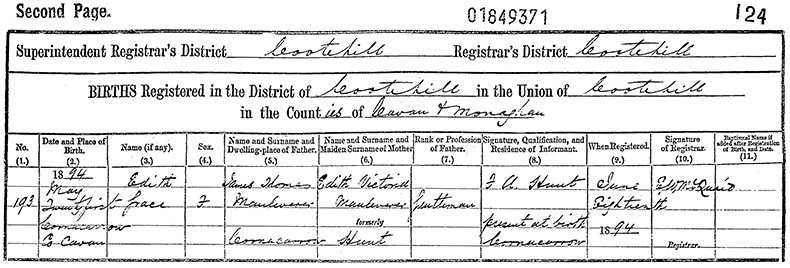 Second Page. 01849371 124
Superintendent Registrar's District Cootehill Registrar's District Cootehill
BIRTHS Registered in the District of Cootehill in the Union of Cootehill
in the Counties of Cavan & Monaghan
No. Date and Place of Birth. Name (if any). Sex. Name and Surname and Dwelling-place of Father. Name and Surname and Maiden Surname of Mother Rank or Profession of Father. Signature, Qualification, and Residence of Informant. When Registered. Signature of Registrar. Baptismal Name if added after Registration of Birth, and Date.
(1.) (2.) (3.) (4.) (5.) (6.) (7.) (8.) (9.) (10.) (11.)
1894 Edith James Thomas Edith Victoria F A Hunt June
May
193 Twenty first Grace F Mauleverer Mauleverer Gentleman Eighteenth
Cornacarrow formerly present at birth 1894
Co Cavan Cornacarrow Hunt Cornacarrow Registrar.